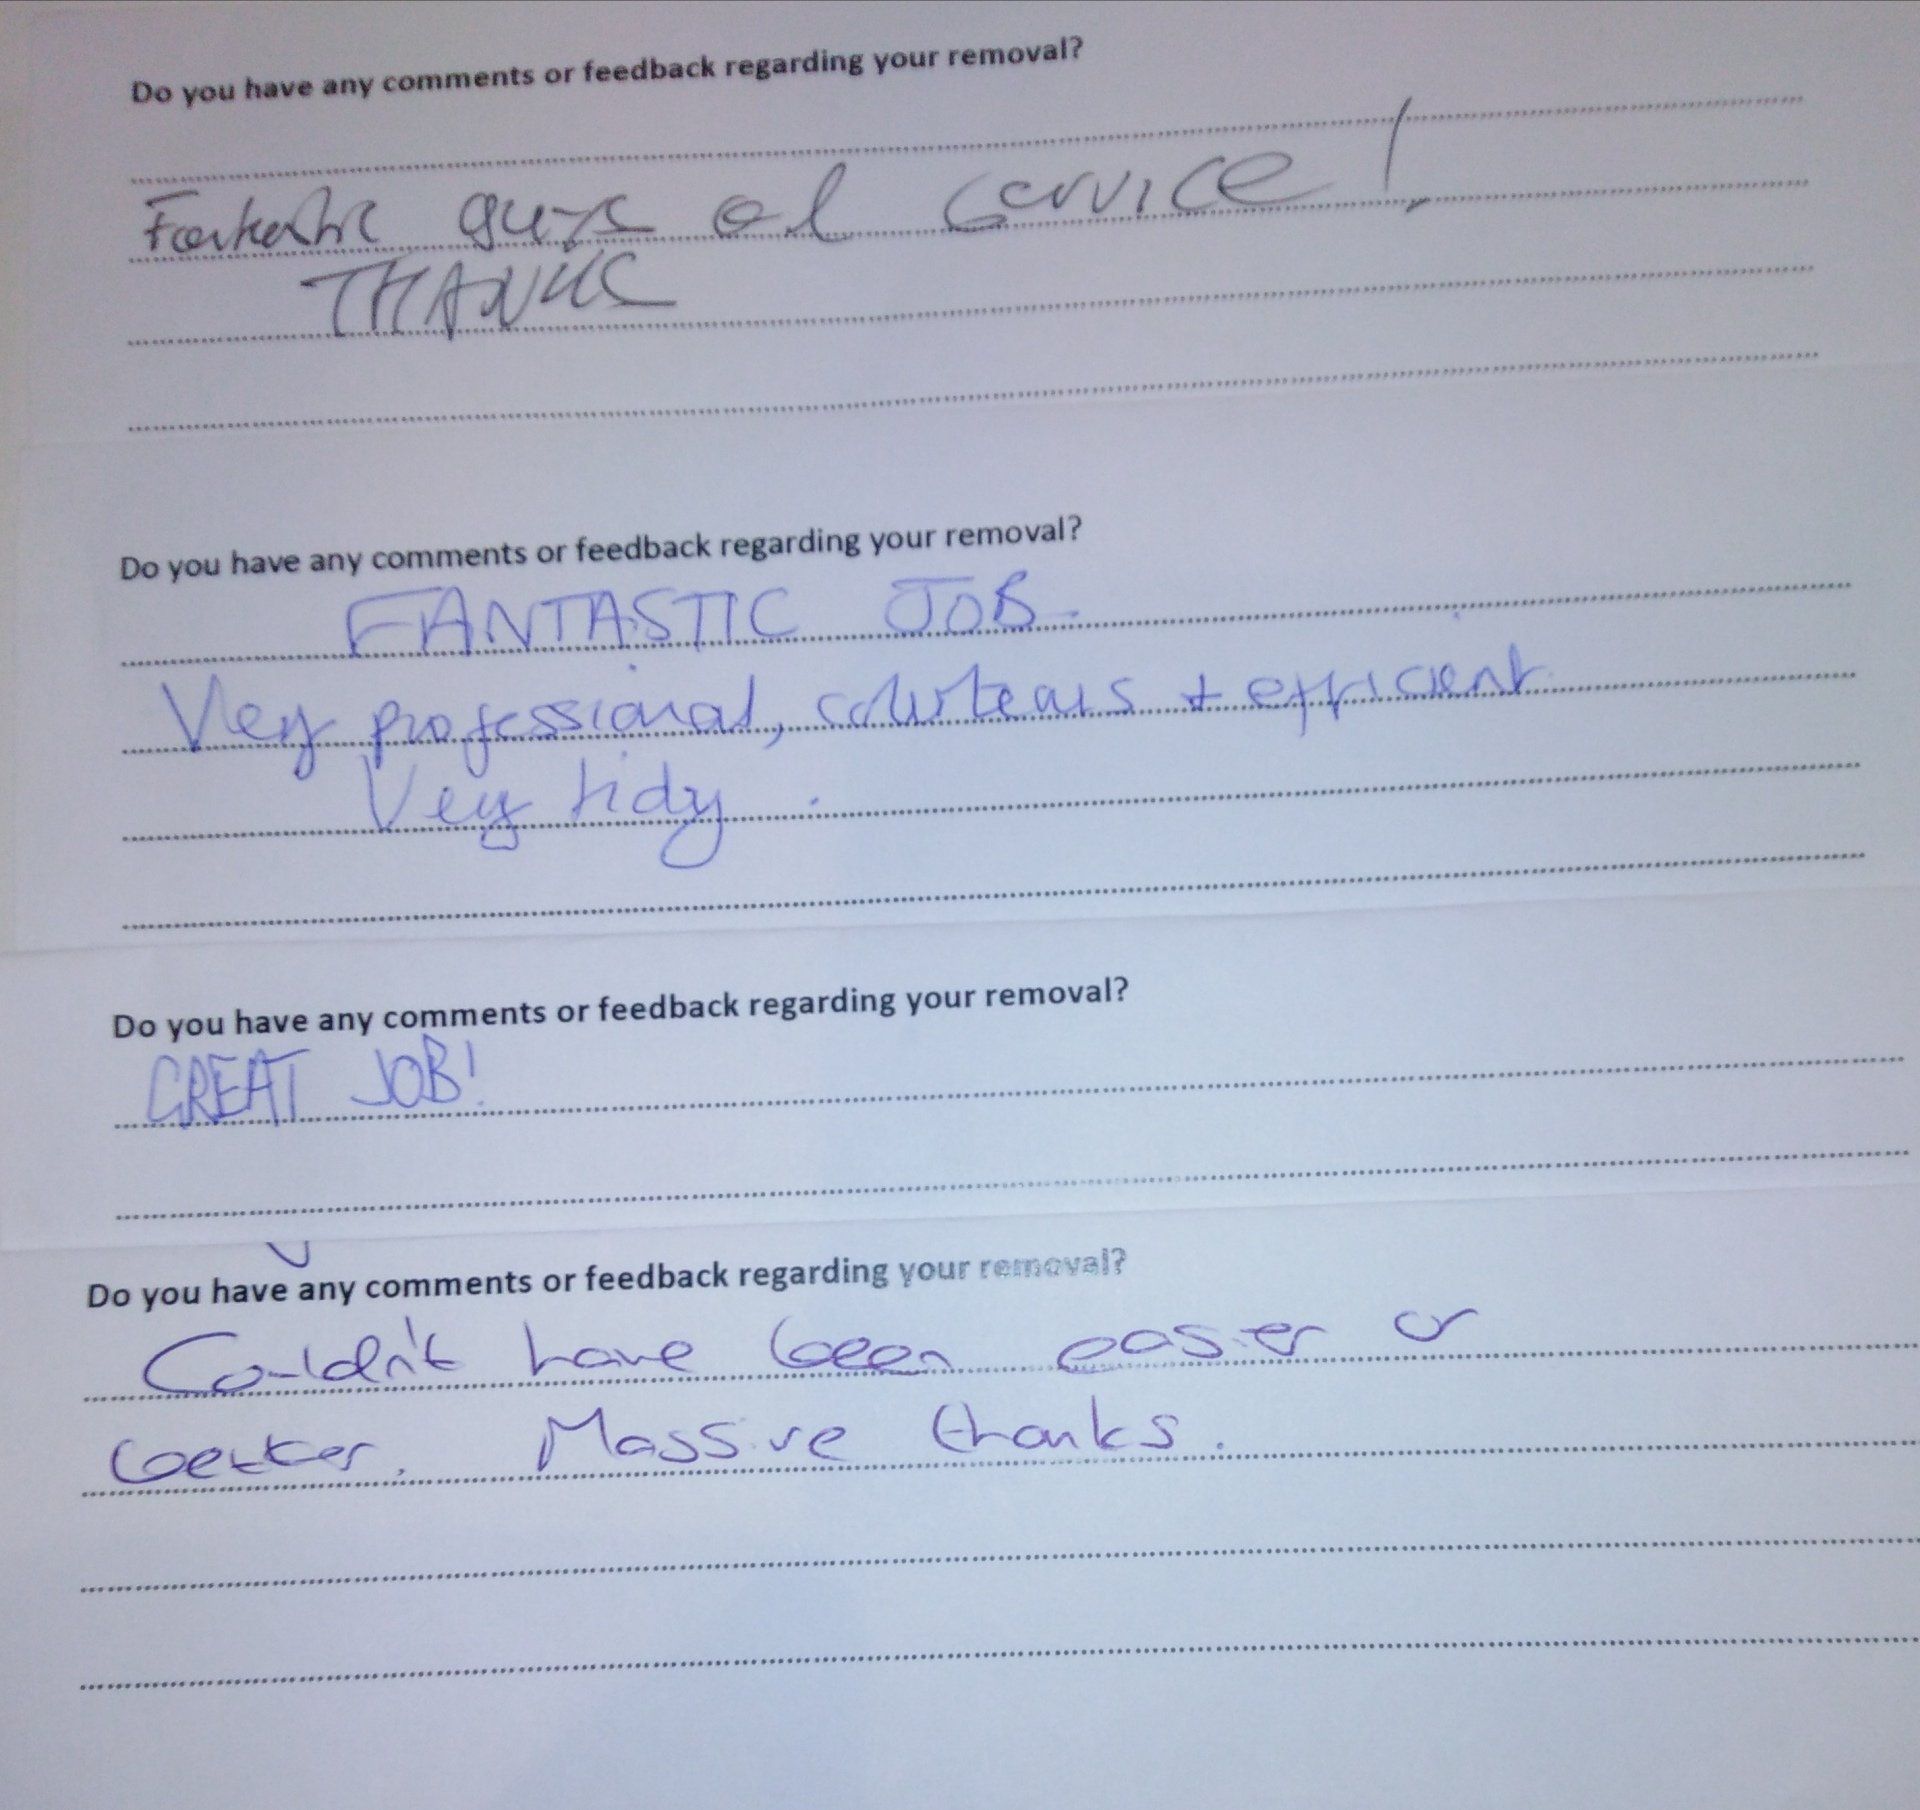 Do you have any comments or feedback regarding your removal?
Fantastic guys ad service!
THANKS
Do you have any comments or feedback regarding your removal?
FANTASTIC JOB.
Very professional, courteous + efficient
Very tidy.
Do you have any comments or feedback regarding your removal?
GREAT JOB!
Do you have any comments or feedback regarding your removal?
Couldn't have been easier or
better. Massive thanks.